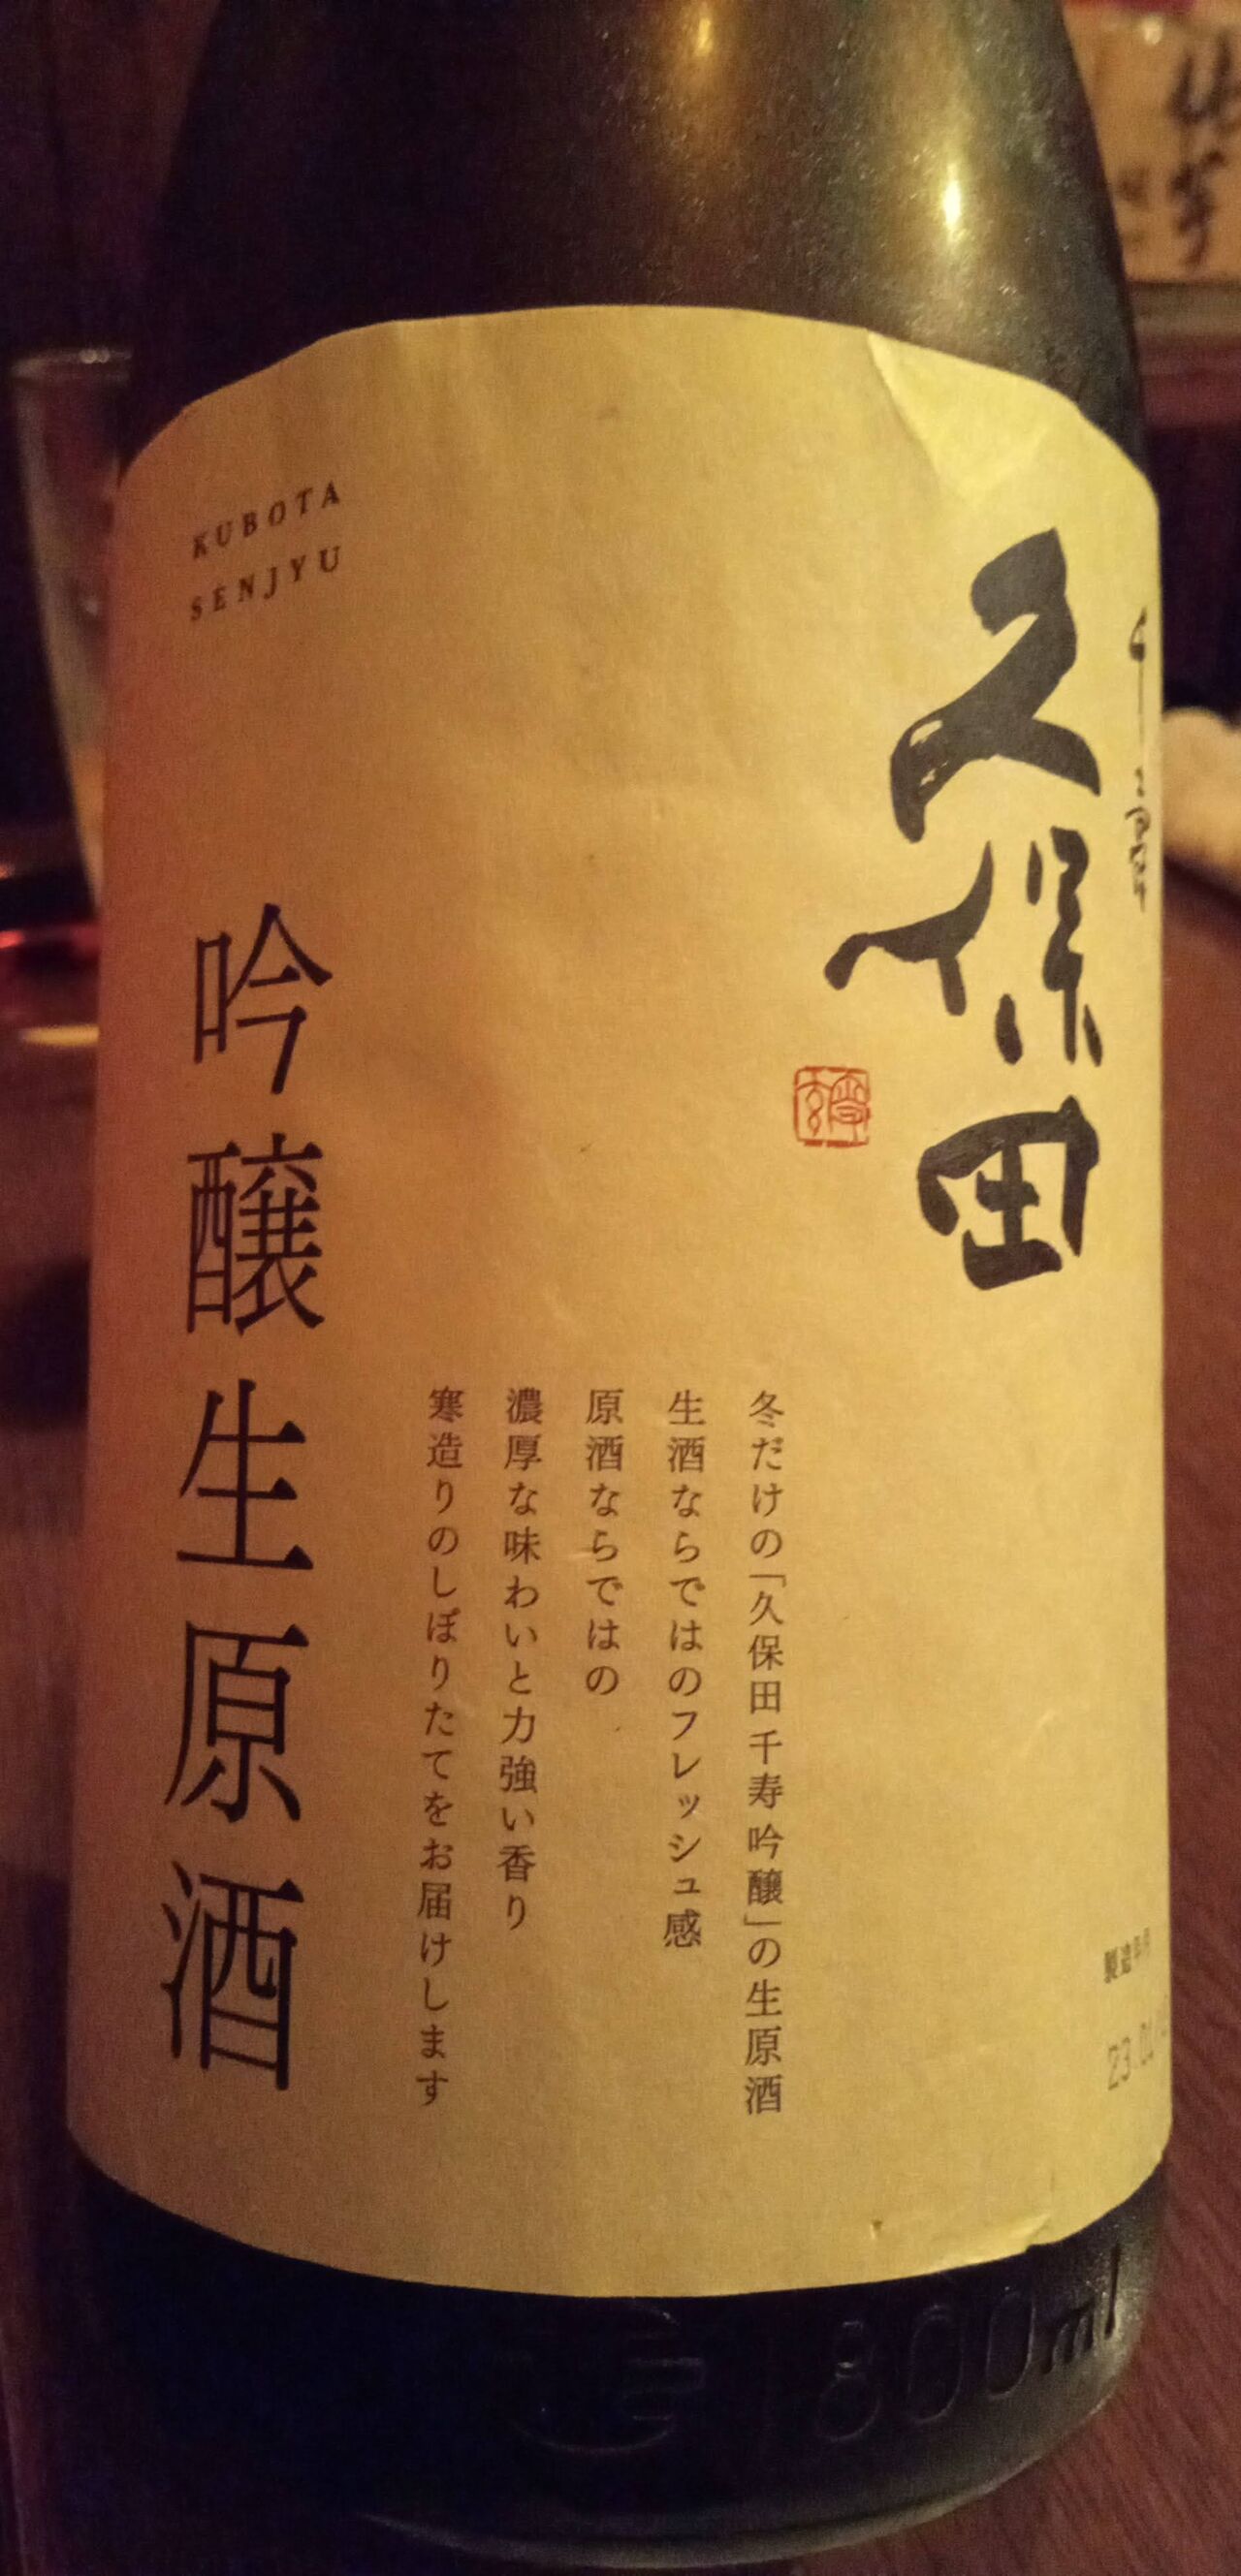 千寿
久保田
冬だけの「久保田千寿吟醸」の生原酒
生酒ならではのフレッシュ感
原酒ならではの
濃厚な味わいと力強い香り
寒造りのしぼりたてをお届けします
KUBOTA
SENJYU
吟醸生原酒
製造年月
23.01
1800ml